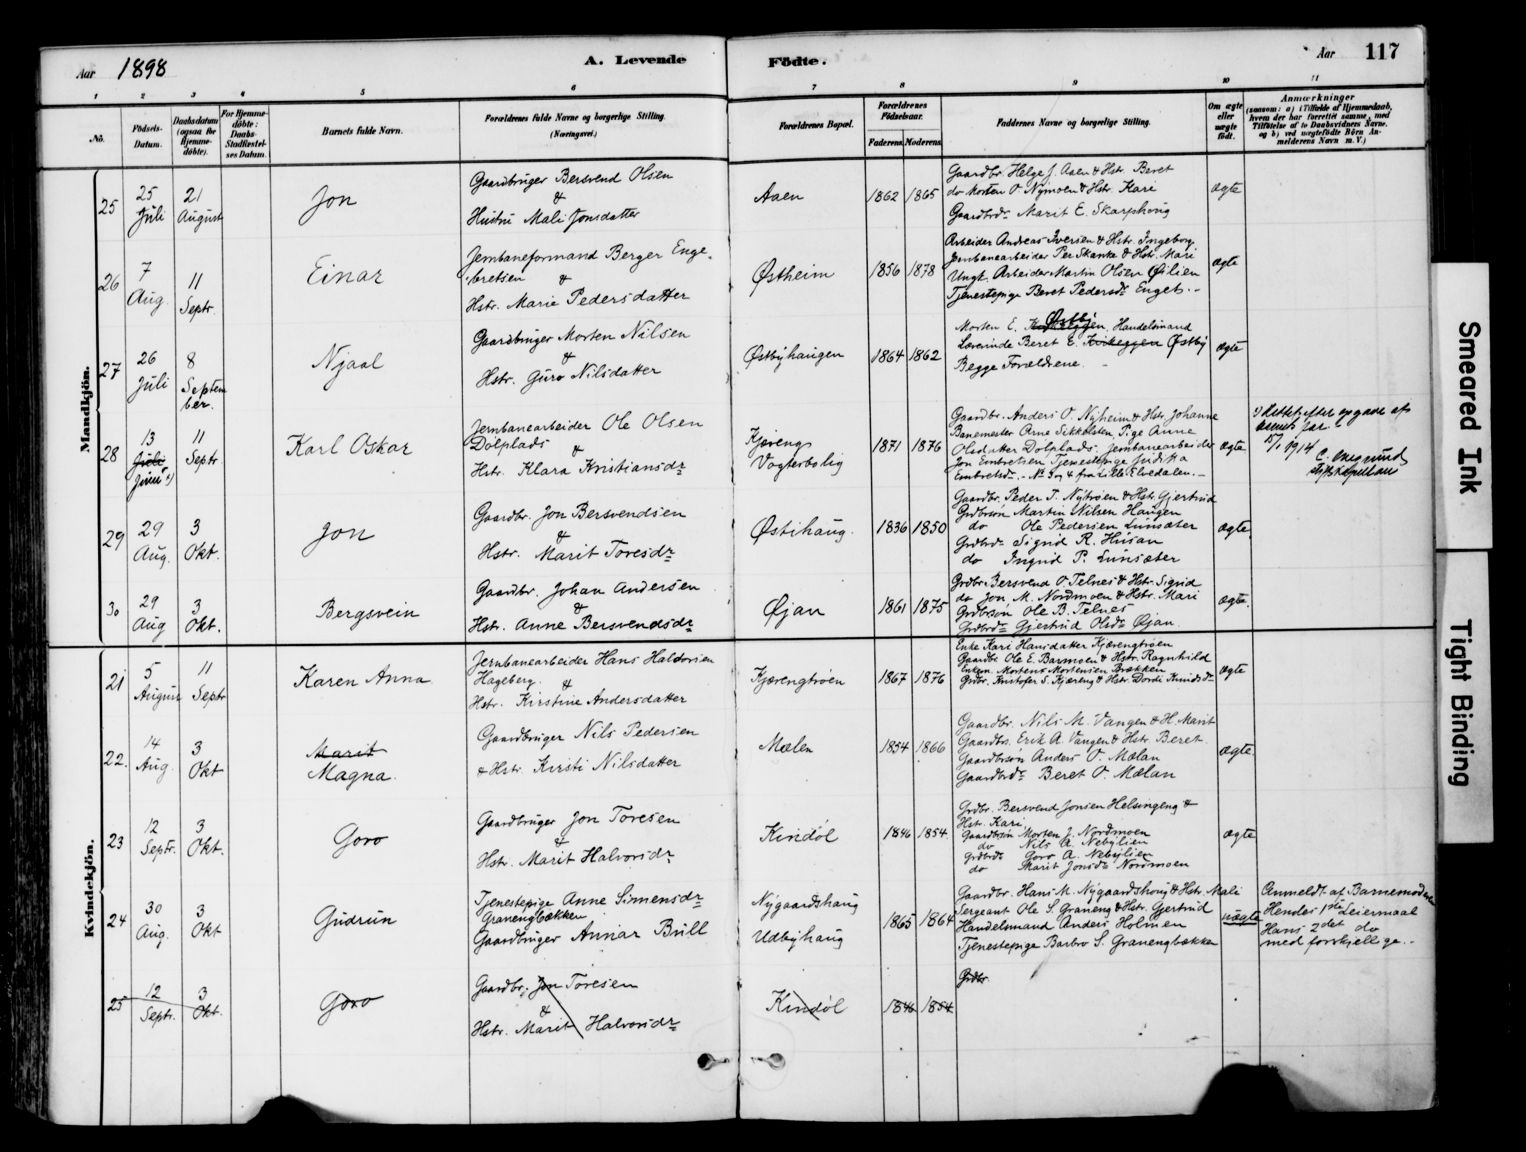 Aar 1898
A. Levende
Fødte.
Aar 117
1 2 3 4 5 6 7 8 9 10 11
No.
Fødsels-Datum.
Daabsdatum (ogsaa for Hjemme-døbte).
For Hjemme-døbte: Daabs-Stadfæstel-ses Datum.
Barnets fulde Navn.
Forældrenes fulde Navne og borgerlige Stilling. (Næringsvei.)
Forældrenes Bopæl.
Forældrenes Fødselsaar.
Faderens. Moderens.
Faddernes Navne og borgerlig Stilling.
Om ægte eller uægte født.
Anmærkninger
(saasom: a) i Tilfælde af Hjemmedaab,
hvem der har forrettet samme, med
Tilføielse af to Daabsvidners Navne,
og b) ved uægtefødte Børn An-
melderens Navn m. V.)
Mandkjön.
25
25 Juli
21 August
Jon
Gaardbruger Bersvend Olsen
&
Hustru Mali Jonsdatter
Aaen
1862 1865
Gaardbr. Helge J. Aaen & Hstr. Beret
do Morten O. Nymoen & Hstr. Kari
Gaardbrdr. Marit E. Skarphoug
ægte
26
7 Aug.
11 Septr.
Einar
Jernbaneformand Berger Enge-
bretsen &
Hstr. Marie Pedersdatter
Østheim
1856 1878
Arbeider Andreas Iversen & Hstr. Ingeborg
Jernbanearbeider Per Skanke & Hstr. Mari
Ungk. Arbeider Martin Olsen Øilien
Tjenestepige Beret Pedersdr. Enget. -
ægte
27
26 Juli
8 Septem ber.
Njaal
Gaardbruger Morten Nilsen
&
Hstr. Guro Nilsdatter
Østbyhaugen
1864 1862
Østby
Morten E. Kvikeggen, Handelsmand
Lærerinde Beret E. Kvikeggen Østby
Begge Forældrene. -
ægte
28
13 Juli Juni 1)
11 Septr
Karl Oskar
Jernbanearbeider Ole Olsen
Dølplads &
Hstr. Klara Kristiansdr.
Kjærengs
Vogterbolig
1871 1876
Gaardbr. Anders O. Nyheim & Hstr. Johanne
Banemester Arne Sikkolsten, Pige Anne
Olsdatter Dølplads, Jernbanearbeider
Jon Embretsen, Tjenestepige Juditta
Embretsdr. - No 3 og 4 fra Lille Elvedalen. -
ægte
1) Rettet efter opgave af
barnets far.
15/1 1914
stiftskapellan
29
29 Aug.
3 Okt.
Jon
Gaardbr. Jon Bersvendsen
&
Hstr. Marit Toresdr.
Østihaug.
1836 1850
Gaardbr. Peder T. Nytrøen & Hstr. Gjertrud
Grdbrsøn Martin Nilsen Haugen
do Ole Pedersen Lunsæter
Grdbrdr. Sigrid R. Husan
do Ingrid P. Lunsæter
ægte.
30
29 Aug
3 Okt.
Bergsvein
Gaardbr. Johan Andersen
&
Hstr. Anne Bersvendsdr.
Øjan
1861 1875
Grdbr. Bersvend O. Telnes & Hstr. Sigrid
do Jon M. Nordmoen & Hstr. Mari
Grdbrsøn Ole B. Telnes
Grdbrdr. Gjertrud Olsdr. Øjan.
ægte.
Kvindekjön.
21
5 August
11 Septr
Karen Anna
Jernbanearbeider Hans Haldorsen
Hageberg. &
Hstr. Kirstine Andersdatter
Kjærengtrøen
1867 1876
Enke Kari Hansdatter Kjærengtrøen
Gaardbr. Ole E. Barmoen & Hstr. Ragnhild
Enkem. Morten Mortensen Brækken
Grdbr. Kristofer S. Kjæreng & Hstr. Dordi Knudsdr.
ægte
22.
14 Aug.
3 Okt
Marit
Magna.
Gaardbruger Nils Pedersen
& Hstr. Kirsti Nilsdatter
Mælen
1854 1866
Gaardbr. Nils M. Vangen & H. Marit
Gaardbr. Erik A. Vangen & Hstr. Beret.
Gaardbrsøn Anders O. Mælan
Gaardbrdr. Beret O. Mælan
ægte.
23
12 Septr.
3 Okt.
Goro
Gaardbruger Jon Toresen
&
Hstr. Marit Halvorsdr.
Kindøl
1846 1854.
Grdbr. Bersvend Jonsen Helsingeng &
Hstr. Kari
Gaardbrsøn Morten J. Nordmoen
do Nils A. Nebylien
Grdbrdr. Goro A. Nebylien
do Marit Jonsdr. Nordmoen
ægte
24
30 Aug.
3 Okt
Gudrun
Tjenestepige Anne Simensdr.
Granengbækken
Gaardbruger Annar Brill
Nygaardshaug
Udbyhaug
1865 1864
Gaardbr. Hans M. Nygaardshoug & Hstr. Mali
Sergeant Ole S. Graneng & Hstr. Gjertrud
Handelsmand Anders Holmen
Tjenestepige Barbro S. Granengbækken
uægte
Anmeldt af Barnemoderen
Hendes 1ste Leiermaal
Hans 2det do
med forskjellige. -
25
12 Septr.
3 Okt.
Goro
Gaardbr. Jon Toresen
&
Hstr. Marit Halvorsdr.
Kindøl
1846 1854.
Grdbr.
Smeared Ink
Tight Binding